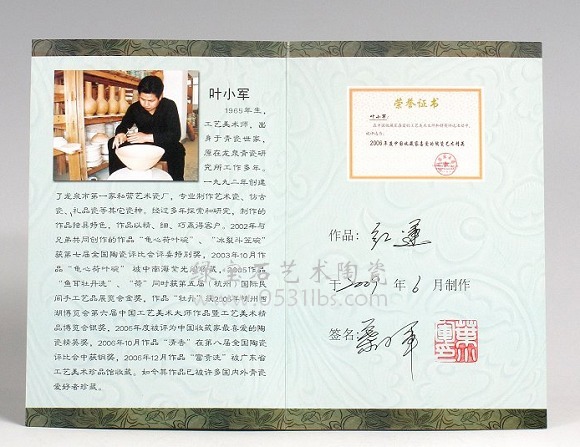 叶小军
1965年生，
工艺美术师，出
身于青瓷世家，
原在龙泉青瓷研
究所工作多年。
一九九二年创建
了龙泉市第一家私营艺术瓷厂，专业制作艺术瓷、仿古
瓷、礼品瓷等其它瓷种。经过多年探索和研究，制作的
作品独具特色，作品以精、细、巧赢得客户。2002年与
兄弟共同创作的作品“龟心荷叶碗”、“冰裂斗笠碗”
获第七届全国陶瓷评比会评委特别奖，2003年10月作
品“龟心荷叶碗”被中南海紫光阁收藏，2005作品
“鱼耳牡丹洗”、“荷”同时获第五届（杭州）国际民
间手工艺品展览会金奖，作品“牡丹”获2005年杭州西
湖博览会第六届中国工艺美术大师作品暨工艺美术精
品博览会银奖，2006年度被评为中国收藏家最喜爱的陶
瓷精英奖，2006年10月作品“清香”在第八届全国陶瓷
评比会中获铜奖，2006年12月作品“富贵洗”被广东省
工艺美术珍品馆收藏。如今其作品已被许多国内外青瓷
爱好者珍藏。
荣誉证书
叶小军：
2006年度中国收藏家喜爱的陶瓷艺术精英
作品：红运
于2009年6月制作
签名：叶小军
绿宝石艺术陶瓷
www.0531lbs.com